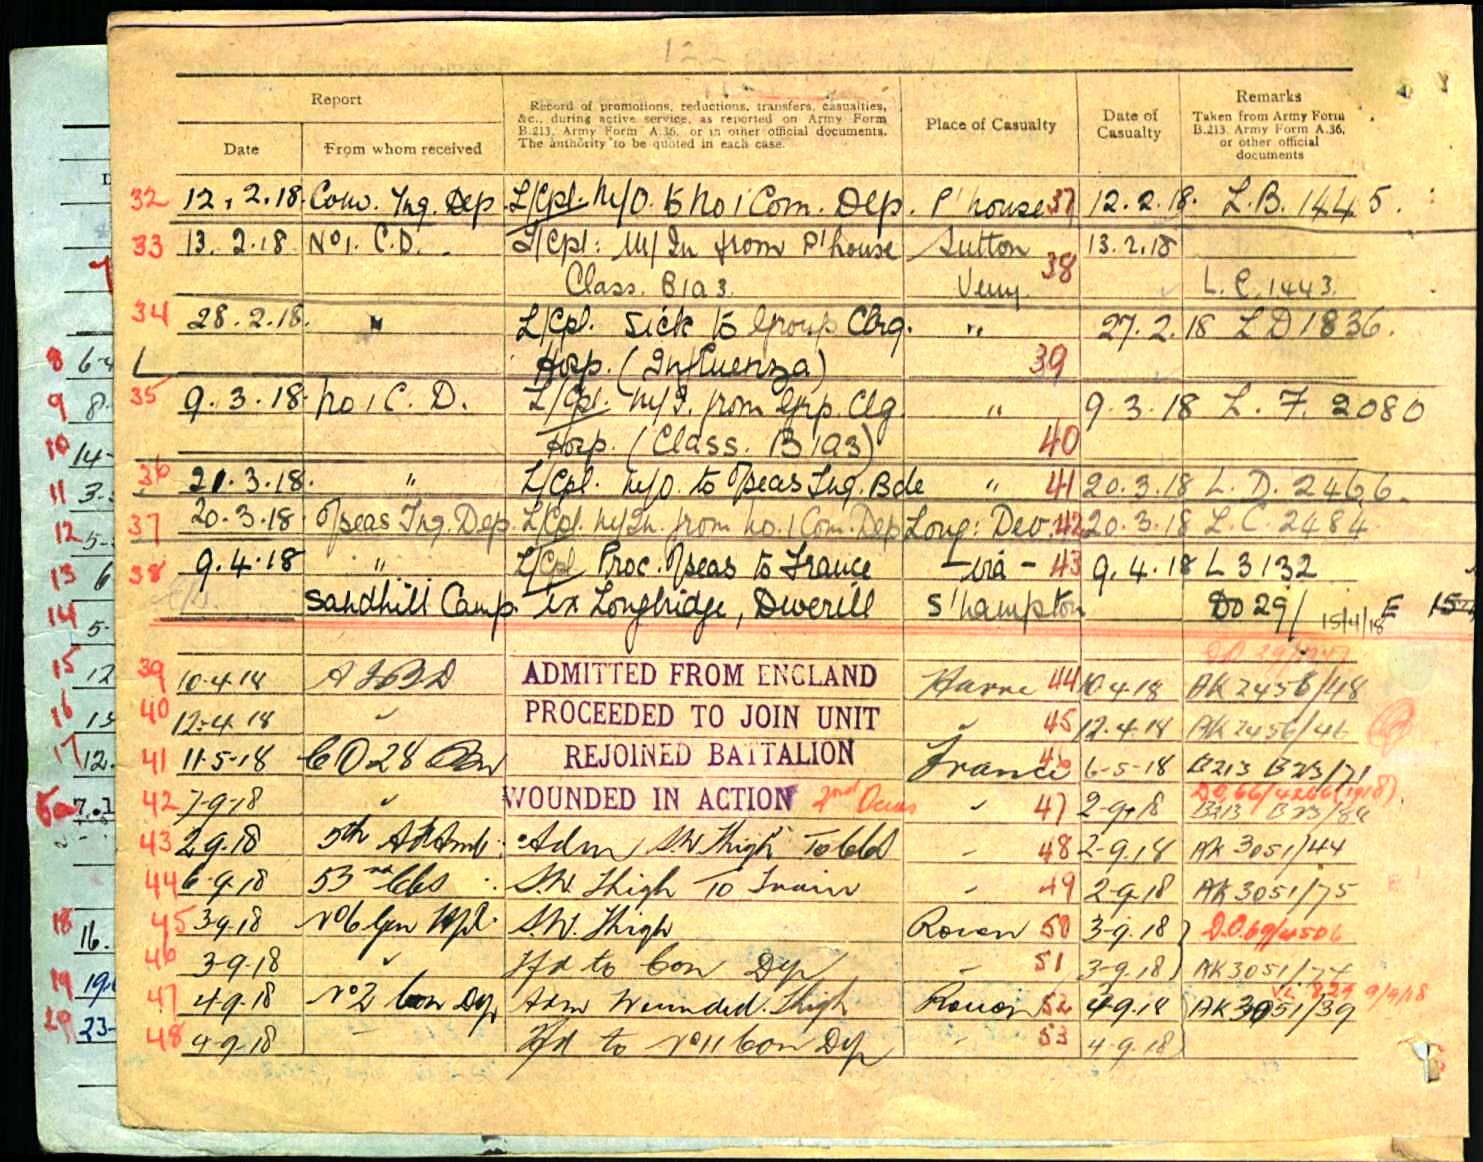 12
Report
Record of promotions, reductions, transfers, casualties, &c., during active service, as reported on Army Form B.213, Army Form A.36, or in other official documents. The authority to be quoted in each case.
Place of Casualty
Date of Casualty
Remarks
Taken from Army Form B.213, Army Form A.36, or other official documents
Date
From whom received
32 12.2.18. Conv. Trg. Dep. L/Cpl. M/O. to No 1 Com. Dep. P'house 37 12.2.18. L.B. 1445.
33 13.2.18 No 1. C.D. L/Cpl: M/In from P'house Sutton 13.2.18
Class. B1a3. Veny. 38 L.C. 1443.
34 28.2.18. " L/Cpl. Sick to Group Clrg. " 27.2.18 L D 1836.
Hosp. (Influenza) 39
35 9.3.18. No 1 C.D. L/Cpl. M/I. from Grp. Clg. " 9.3.18 L. F. 2080
Hosp. (Class. B1a3) 40
36 21.3.18. " L/Cpl. M/O. to O'seas Trg. Bde " 41 20.3.18 L. D. 2466.
37 20.3.18. O'seas Trg. Dep. L/Cpl. M/In. from No. 1 Com. Dep Long: Dev. 42 20.3.18 L.C. 2484
38 9.4.18 " L/Cpl Proc. O'seas to France - via - 43 9.4.18 L 3132
Sandhill Camp. in Longbridge, Deverill S'hampton DO 29/ 15/4/18 E
39 10.4.18 A I B D ADMITTED FROM ENGLAND Havre 44 10.4.18 AK 2456/48
40 12.4.18 " PROCEEDED TO JOIN UNIT " 45 12.4.18 AK 2456/46
41 11-5-18 CO 28 Bn REJOINED BATTALION France 46 6-5-18 B213 B23/71
42 7-9-18 " WOUNDED IN ACTION 2nd Occas " 47 2-9-18 B213 B23/84
43 2.9.18 5th A Fd Amb. Adm S.W. Thigh To CCS " 48 2-9.18 AK 3051/44
44 6-9-18 53rd CCS S.W. Thigh To Train " 49 2-9.18 AK 3051/75
45 3.9.18 No 6 Gen Hpl. S.W. Thigh Rouen 50 3-9.18 D.O.69/4506
46 3-9.18 " Tfd to Con Dep " 51 3-9.18 AK 3051/74
47 4-9.18 No 2 Con Dep Adm Wounded. Thigh Rouen 52 4-9.18 AK 3051/39 9/9/18
48 4-9.18 " Tfd to No 11 Con Dep " 53 4-9.18
8 6-
9 8.
10 14-
11 3.
12 5-
13 6
14 5-
15 12
16 13
17 12.
5a 7.
18 16.
19 19.
20 23-